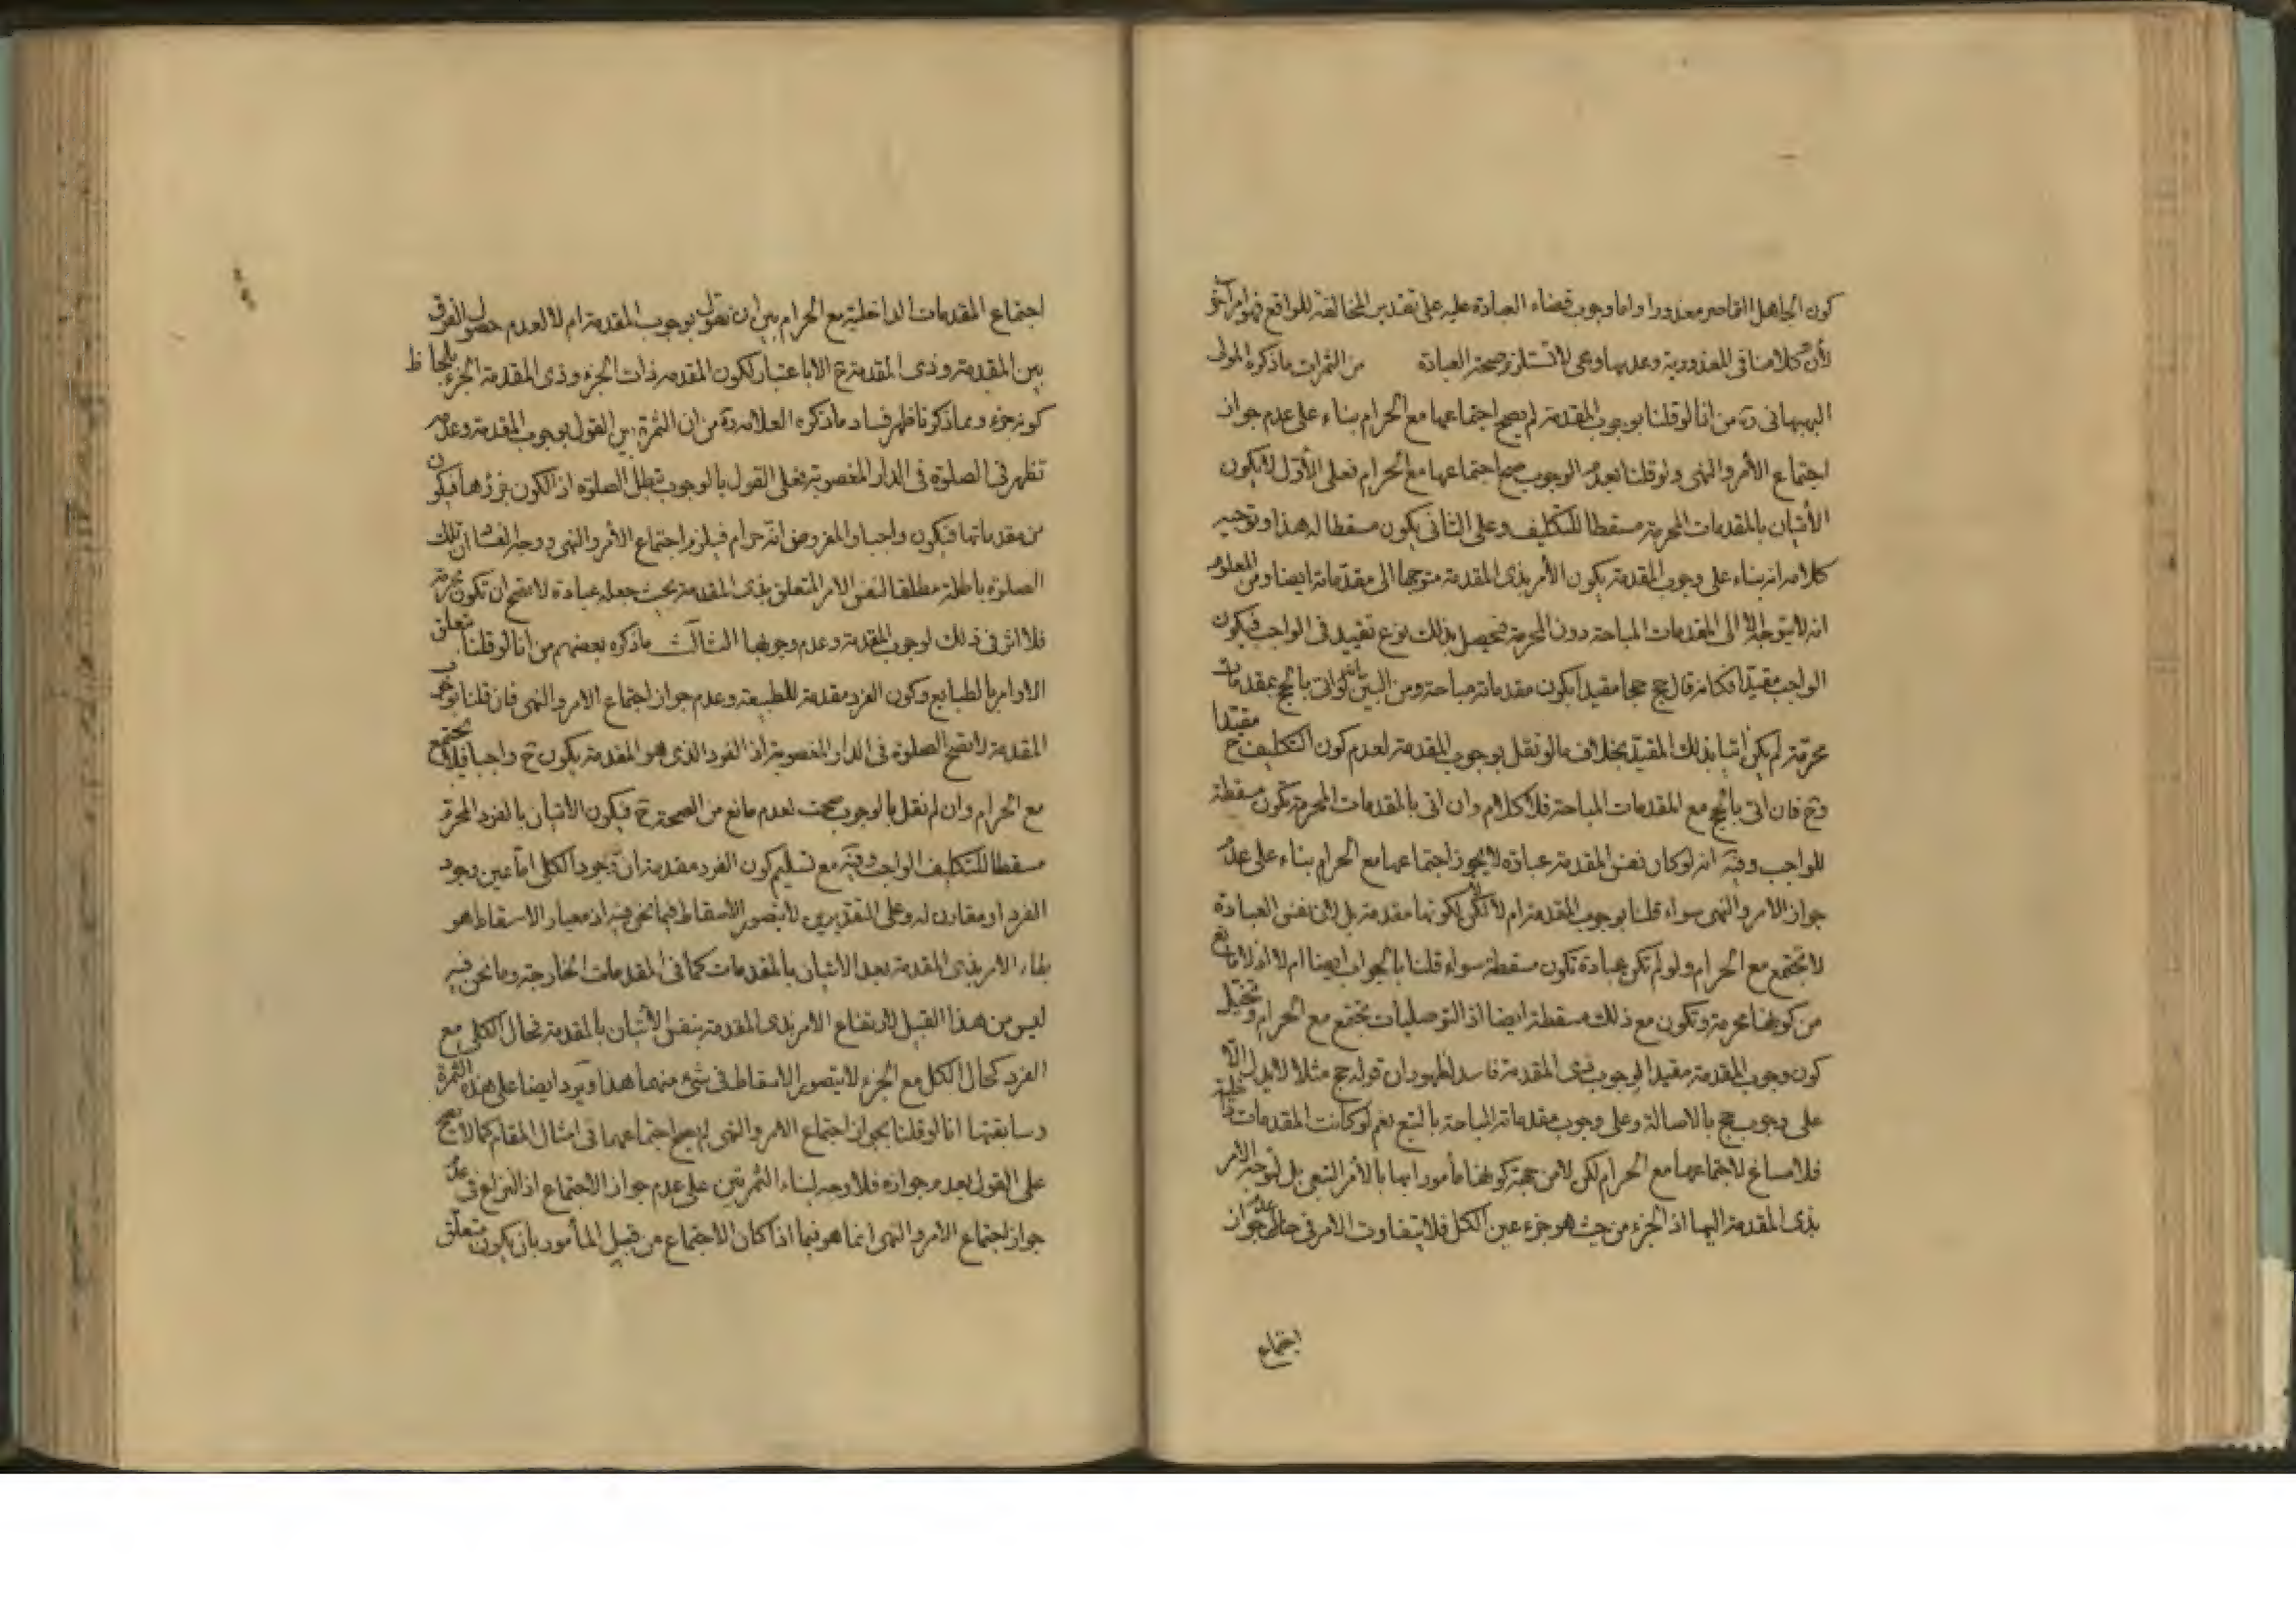 كون الجاهل القاصر معذورا واما وجوب قضاء العبادة عليه على تقدير المخالفة للواقع فهو امر آخر
لأن كلامنا فى المعذورية وعدمها وهى لا تستلزم صحة العبادة من الثمرات ما ذكره المولى
البهبهانى ره من انا لو قلنا بوجوب المقدمة لم يصح اجتماعها مع الحرام بناء على عدم جواز
اجتماع الأمر والنهى ولو قلنا بعدم الوجوب صح اجتماعها مع الحرام فعلى الأول لا يكون
الأتيان بالمقدمات المحرمة مسقطا للتكليف وعلى الثانى يكون مسقطا له هذا وتوجيه
كلامه انه بناء على وجوب المقدمة يكون الأمر بذى المقدمة متوجها الى مقدماته ايضا ومن المعلوم
انه لا يتوجه الا الى المقدمات المباحة دون المحرمة فيحصل بذلك نوع تقييد فى الواجب فيكون
الواجب مقيدا فكانه قال حج حجا مقيدا بكون مقدماته مباحة ومن البين انه لو اتى بالحج بمقدمات
محرمة لم يكن آتيا بذلك المقيد بخلاف ما لو نقل بوجوب المقدمة لعدم كون التكليف ح مقيدا
وح فان اتى بالحج مع المقدمات المباحة فلا كلام وان اتى بالمقدمات المحرمة تكون مسقطة
للواجب وفيه انه لو كان نفس المقدمة عبادة لا يجوز اجتماعها مع الحرام بناء على عدم
جواز الامر والنهى سواء قلنا بوجوب المقدمة ام لا لكن لا لكونها مقدمة بل لان نفس العبادة
لا تجتمع مع الحرام ولو لم تكن عبادة تكون مسقطة سواء قلنا بالجواب ايضا ام لا اذ لا مانع
من كونها محرمة وتكون مع ذلك مسقطة ايضا اذ التوصليات تجتمع مع الحرام وتخيل
كون وجوب المقدمة مقيدا لوجوب ذى المقدمة فاسد لظهور ان قوله حج مثلا لا يدل الا
على وجوب حج بالاصالة وعلى وجوب مقدماته المباحة بالتبع نعم لو كانت المقدمات داخلية
فلا مساغ لاجتماعها مع الحرام لكن لا من جهة كونها مأمورا بها بالأمر التبعى بل لتوجه الامر
بذى المقدمة اليها اذ الجزء من حيث هو جزء عين الكل فلا يتفاوت الامر فى حال عدم جواز
اجتماع
اجتماع المقدمات الداخلية مع الحرام بين ان نقول بوجوب المقدمة ام لا لعدم حصول الفرق
بين المقدمة وذى المقدمة ح الا باعتبار كون المقدمة ذات الجزء وذى المقدمة الجزء بلحاظ
كونه جزء وبما ذكرنا ظهر فساد ما ذكره العلامة ره من ان الثمرة بين القول بوجوب المقدمة وعدمه
تظهر فى الصلوة فى الدار المغصوبة فعلى القول بالوجوب تبطل الصلوة اذ الكون جزؤها فيكون
من مقدماتها فيكون واجبا والمفروض انه حرام فيلزم اجتماع الأمر والنهى ووجه الفساد ان تلك
الصلوة باطلة مطلقا لنفس الامر المتعلق بذى المقدمة بحيث جعله عبادة لا تصح ان تكون محرمة
فلا اثر فى ذلك لوجوب المقدمة وعدم وجوبها الثالث ما ذكره بعضهم من انا لو قلنا بتعلق
الاوامر بالطبايع وكون الفرد مقدمة للطبيعة وعدم جواز اجتماع الامر والنهى فان قلنا بوجوب
المقدمة لا تصح الصلوة فى الدار المغصوبة اذ الفرد الذى هو المقدمة يكون ح واجبا فلا يجتمع
مع الحرام وان لم نقل بالوجوب صحت لعدم مانع من الصحة ح فيكون الاتيان بالفرد المحرم
مسقطا للتكليف الواجب وفيه مع تسليم كون الفرد مقدمة ان وجود الكلى اما عين وجود
الفرد او مقارن له وعلى التقديرين لا يتصور الاسقاط فيما نحن فيه اذ معيار الاسقاط هو
بقاء الامر بذى المقدمة بعد الاتيان بالمقدمات كما فى المقدمات الخارجة وما نحن فيه
ليس من هذا القبيل لارتفاع الامر بذى المقدمة بنفس الأتيان بالمقدمة فحال الكلى مع
الفرد كحال الكل مع الجزء لا يتصور الاسقاط فى شىء منهما هذا ويرد ايضا على هذه الثمرة
وسابقتها انا لو قلنا بجواز اجتماع الامر والنهى لم يصح اجتماعهما فى امثال المقام كما لا يصح
على القول بعدم جوازه فلا وجه لبناء الثمرتين على عدم جواز الاجتماع اذ النزاع فى عدم
جواز اجتماع الامر والنهى انما هو فيما اذا كان الاجتماع من قبيل المأمور بان يكون متعلق